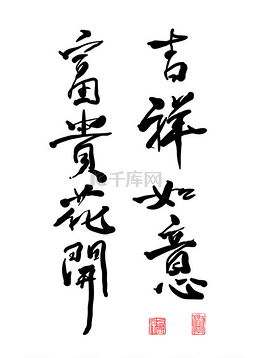 吉祥如意
富貴花開
千库网
588ku.com